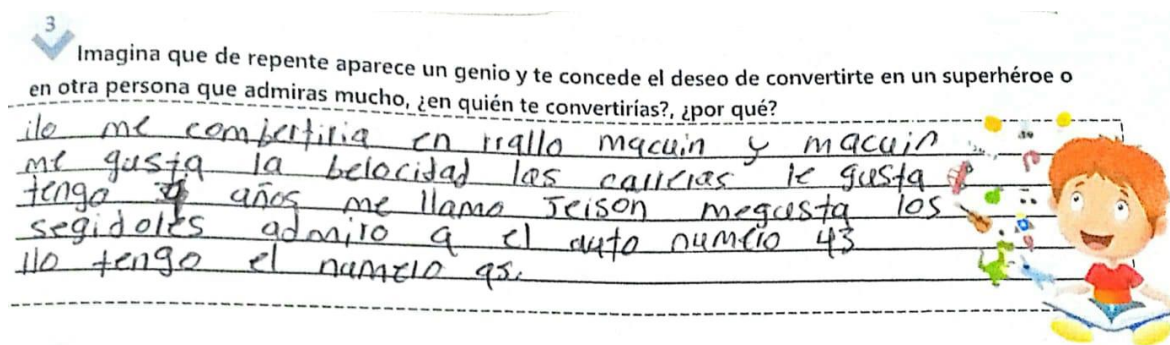 3
Imagina que de repente aparece un genio y te concede el deseo de convertirte en un superhéroe o
en otra persona que admiras mucho, ¿en quién te convertirías?, ¿por qué?
ilo me combertiria en rrallo macuin y macuin
me gusta la belocidad las carreras le gusta
tengo años me llamo Jeison megusta los
segidores admiro a el auto numero 43
llo tengo el numero 95.